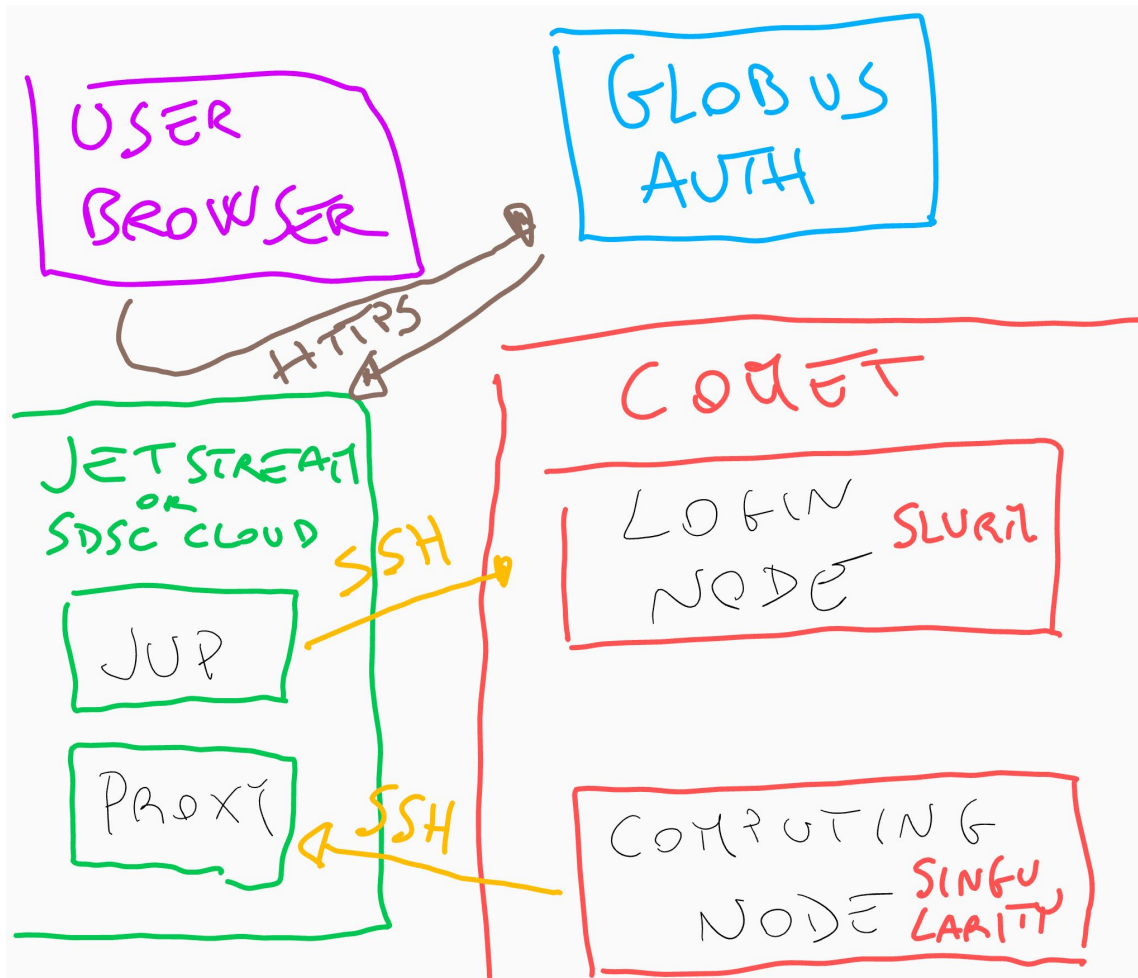 USER
BROWSER
GLOBUS
AUTH
HTTPS
JETSTREAM
OR
SDSC CLOUD
JUP
PROXY
SSH
SSH
COMET
LOGIN
NODE
SLURM
COMPUTING
NODE
SINGU
LARITY